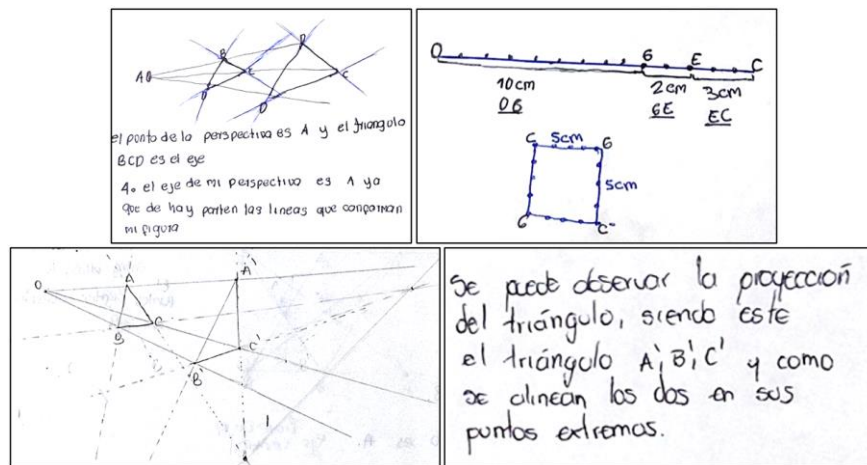 A
B
D
E
D
C
D
el punto de la perspectiva es A y el triangulo
BCD es el eje
4. el eje de mi perspectiva es A ya
que de hay parten las lineas que conforman
mi figura
O
6
E
C
10cm
2cm
3cm
O6
6E
EC
C
5cm
6
5cm
6
C"
O
A
A'
B
C
C'
B'
1
Se puede observar la proyección
del triángulo, siendo este
el triángulo A', B', C' y como
se alinean los dos en sus
puntos extremos.